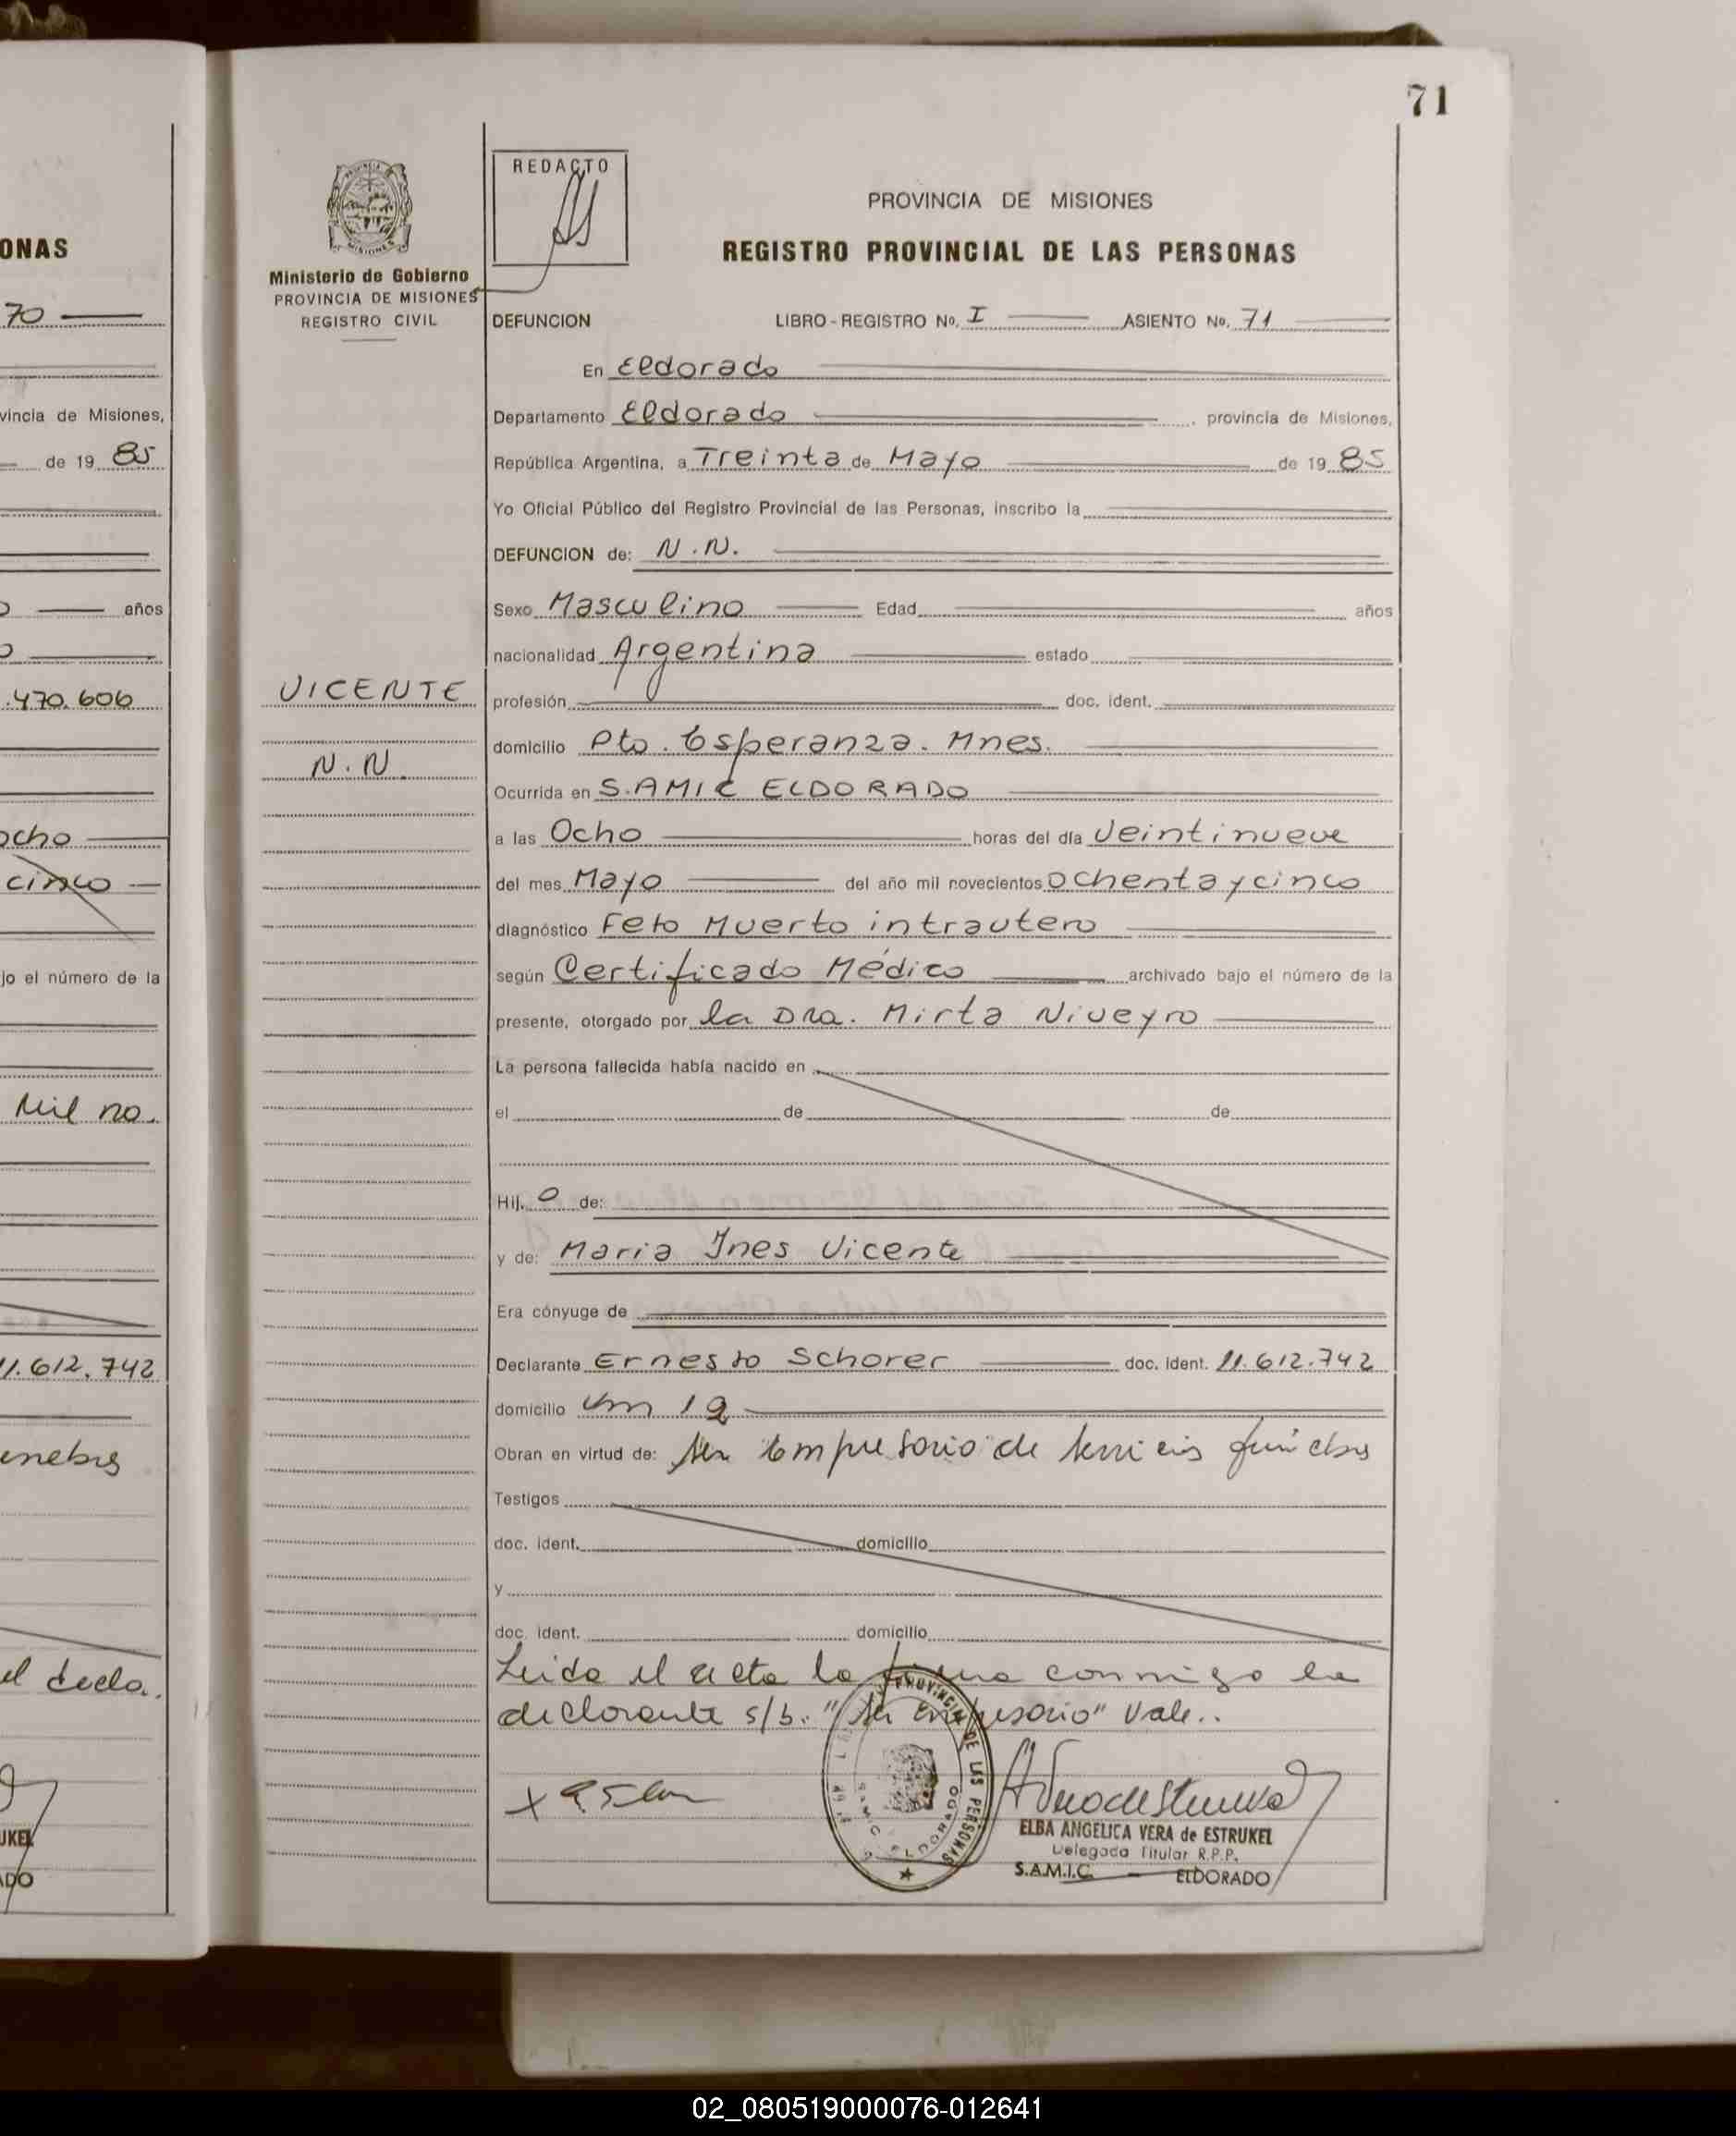 71
ONAS
70
vincia de Misiones,
de 19 85
años
.470.606
ocho
cinco
jo el número de la
Mil no.
11.612.742
enebres
el decla.
UKEL
ADO
Ministerio de Gobierno
PROVINCIA DE MISIONES
REGISTRO CIVIL
VICENTE
N.N.
REDACTO
PROVINCIA DE MISIONES
REGISTRO PROVINCIAL DE LAS PERSONAS
DEFUNCION LIBRO-REGISTRO No. I ASIENTO No. 71
En Eldorado
Departamento Eldorado , provincia de Misiones,
República Argentina, a Treinta de Mayo de 19 85
Yo Oficial Público del Registro Provincial de las Personas, inscribo la
DEFUNCION de: N.N.
Sexo Masculino Edad años
nacionalidad Argentina estado
profesión doc. ident.
domicilio Pto. Esperanza. Mnes.
Ocurrida en S.AMIC ELDORADO
a las Ocho horas del día Veintinueve
del mes Mayo del año mil novecientos Ochenta y cinco
diagnóstico Feto Muerto intrautero
según Certificado Médico archivado bajo el número de la
presente, otorgado por la Dra. Mirta Niveyro
La persona fallecida había nacido en
el de de
Hij. o de:
y de: Maria Ines Vicente
Era cónyuge de
Declarante Ernesto Schorer doc. ident. 11.612.742
domicilio Km 12
Obran en virtud de: ser Empresorio de servicis fúnebres
Testigos
doc. ident. domicilio
y
doc. ident. domicilio
Leida el acta la firma conmigo la
declorante s/b. "ser empresorio" Vale..
PROVINCIAL DE LAS PERSONAS
ELDORADO
ELBA ANGELICA VERA de ESTRUKEL
Delegada Titular R.P.P.
S.A.M.I.C. — ELDORADO
02_080519000076-012641